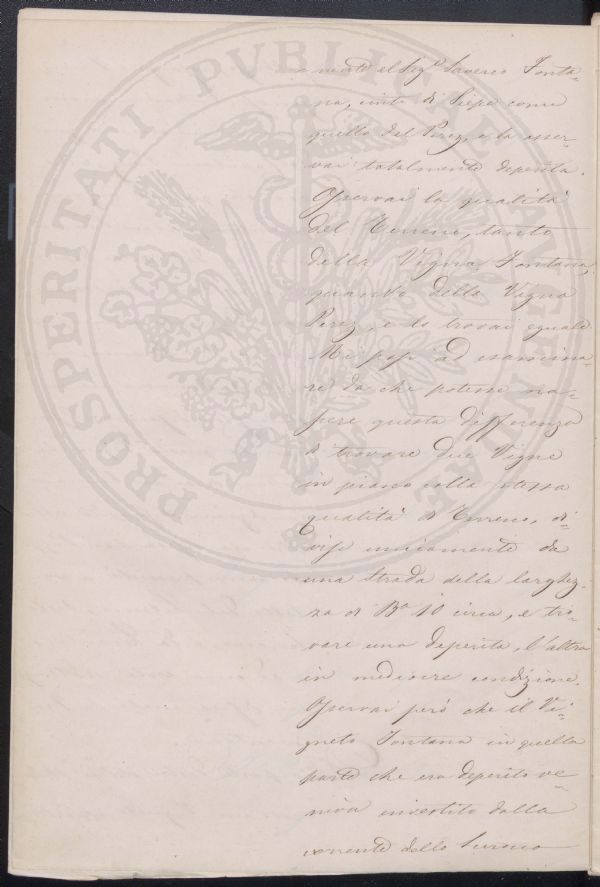 PROSPERITATI PVBLICAE AVGEVDAE
mato el Sigr. Saverio Fonta-
na, cinta di Siepe come
quello del Perez, e la osser-
vai totalmente deperita.
Osservai la qualità
del Terreno, tanto
della Vigna Fontana,
quando della Vigna
Perez, e lo trovai eguale.
Mi posi ad esamina-
re da che potesse na-
scere questa differenza
di trovare due Vigne
in piano colla stessa
qualità di Terreno, di-
vise unicamente da
una strada della larghez-
za di Ba. 10 circa, e tro-
vare una deperita, l'altra
in mediocre condizione.
Osservai però che il Vi-
gneto Fontana in quella
parte che era deperito ve-
niva investito dalla
corrente dello Scirocco